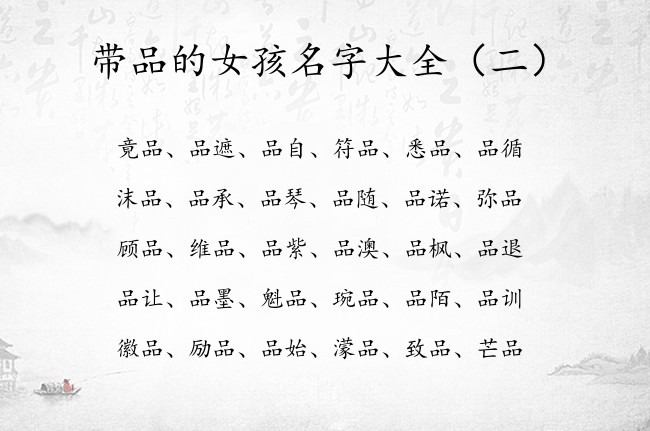 带品的女孩名字大全（二）
竟品、品遮、品自、符品、悉品、品循
沫品、品承、品琴、品随、品诺、弥品
顾品、维品、品紫、品澳、品枫、品退
品让、品墨、魁品、琬品、品陌、品训
徽品、励品、品始、濛品、致品、芒品